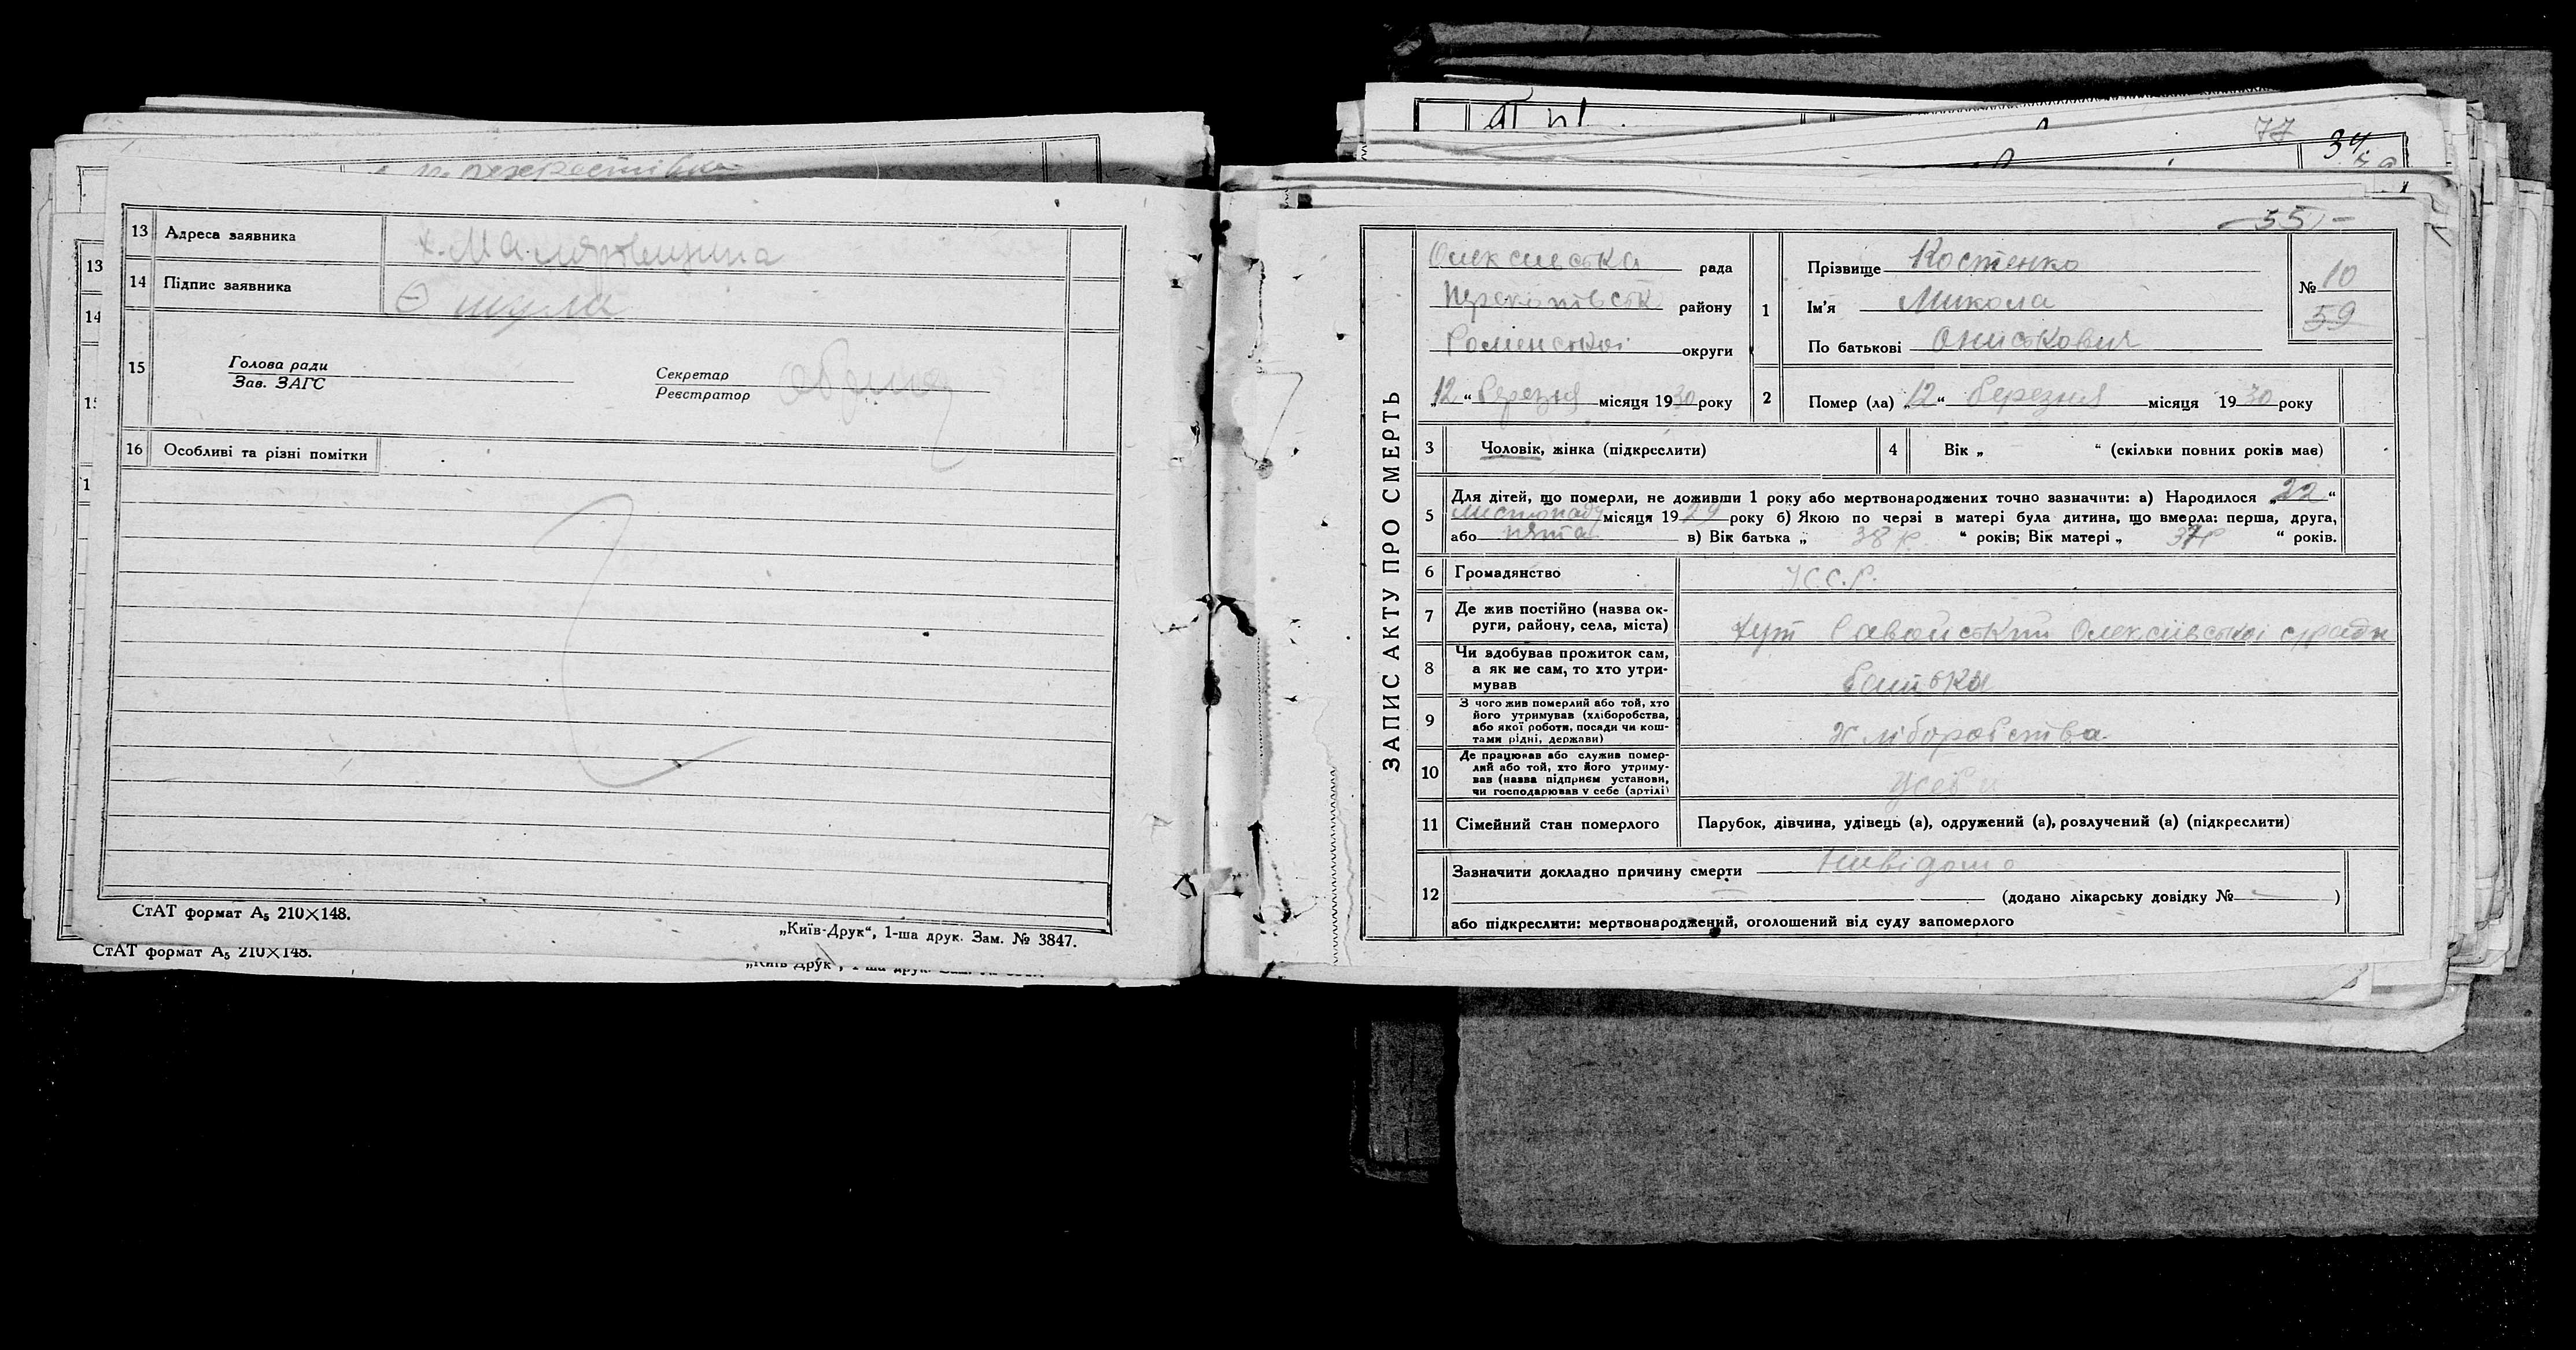 13 Адреса заявника
14 Підпис заявника
15 Голова ради
Зав. ЗАГС
Секретар
Реєстратор
16 Особливі та різні помітки
СтАТ формат А₅ 210×148.
„Київ-Друк“, 1-ша друк. Зам. № 3847.
СтАТ формат А₅ 210×148.
77
34
55 -
ЗАПИС АКТУ ПРО СМЕРТЬ
Олексиевська рада
району
Роменської округи
„12“ березня місяця 1930 року
1 Прізвище Костенко
Ім'я Микола
По батькові Онискович
№ 10
59
2 Помер (ла) „12“ березня місяця 1930 року
3 Чоловік, жінка (підкреслити)
4 Вік „ “ (скільки повних років має)
5 Для дітей, що померли, не доживши 1 року або мертвонароджених точно зазначити: а) Народилося „22“
листопаду місяця 1929 року б) Якою по черзі в матері була дитина, що вмерла: перша, друга,
або пята в) Вік батька „ 38 р “ років; Вік матері „ 37 р “ років.
6 Громадянство У.С.С.Р.
7 Де жив постійно (назва ок-
руги, району, села, міста)
хут Савойський Олексіївської с/ради
8 Чи здобував прожиток сам,
а як не сам, то хто утри-
мував
батько
9 З чого жив померлий або той, хто
його утримував (хліборобства,
або якої роботи, посади чи кош-
тами рідні, держави)
Хліборобства
10 Де працював або служив помер-
лий або той, хто його утриму-
вав (назва підприєм установи,
чи господарював у себе (артілі)
У себе
11 Сімейний стан померлого
Парубок, дівчина, удівець (а), одружений (а), розлучений (а) (підкреслити)
12 Зазначити докладно причину смерти Нивідомо
(додано лікарську довідку № )
або підкреслити: мертвонароджений, оголошений від суду запомерлого